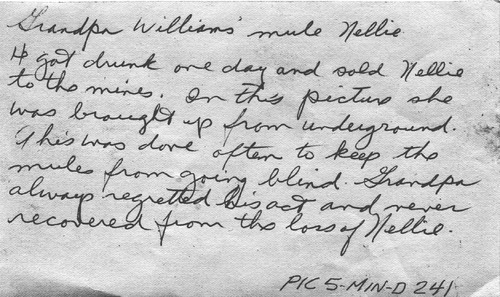 Grandpa Williams' mule Nellie
H got drunk one day and sold Nellie
to the mines. In this picture she
was brought up from underground.
This was done often to keep the
mules from going blind. Grandpa
always regretted his act and never
recovered from the loss of Nellie.
PIC 5-MIN-D 241